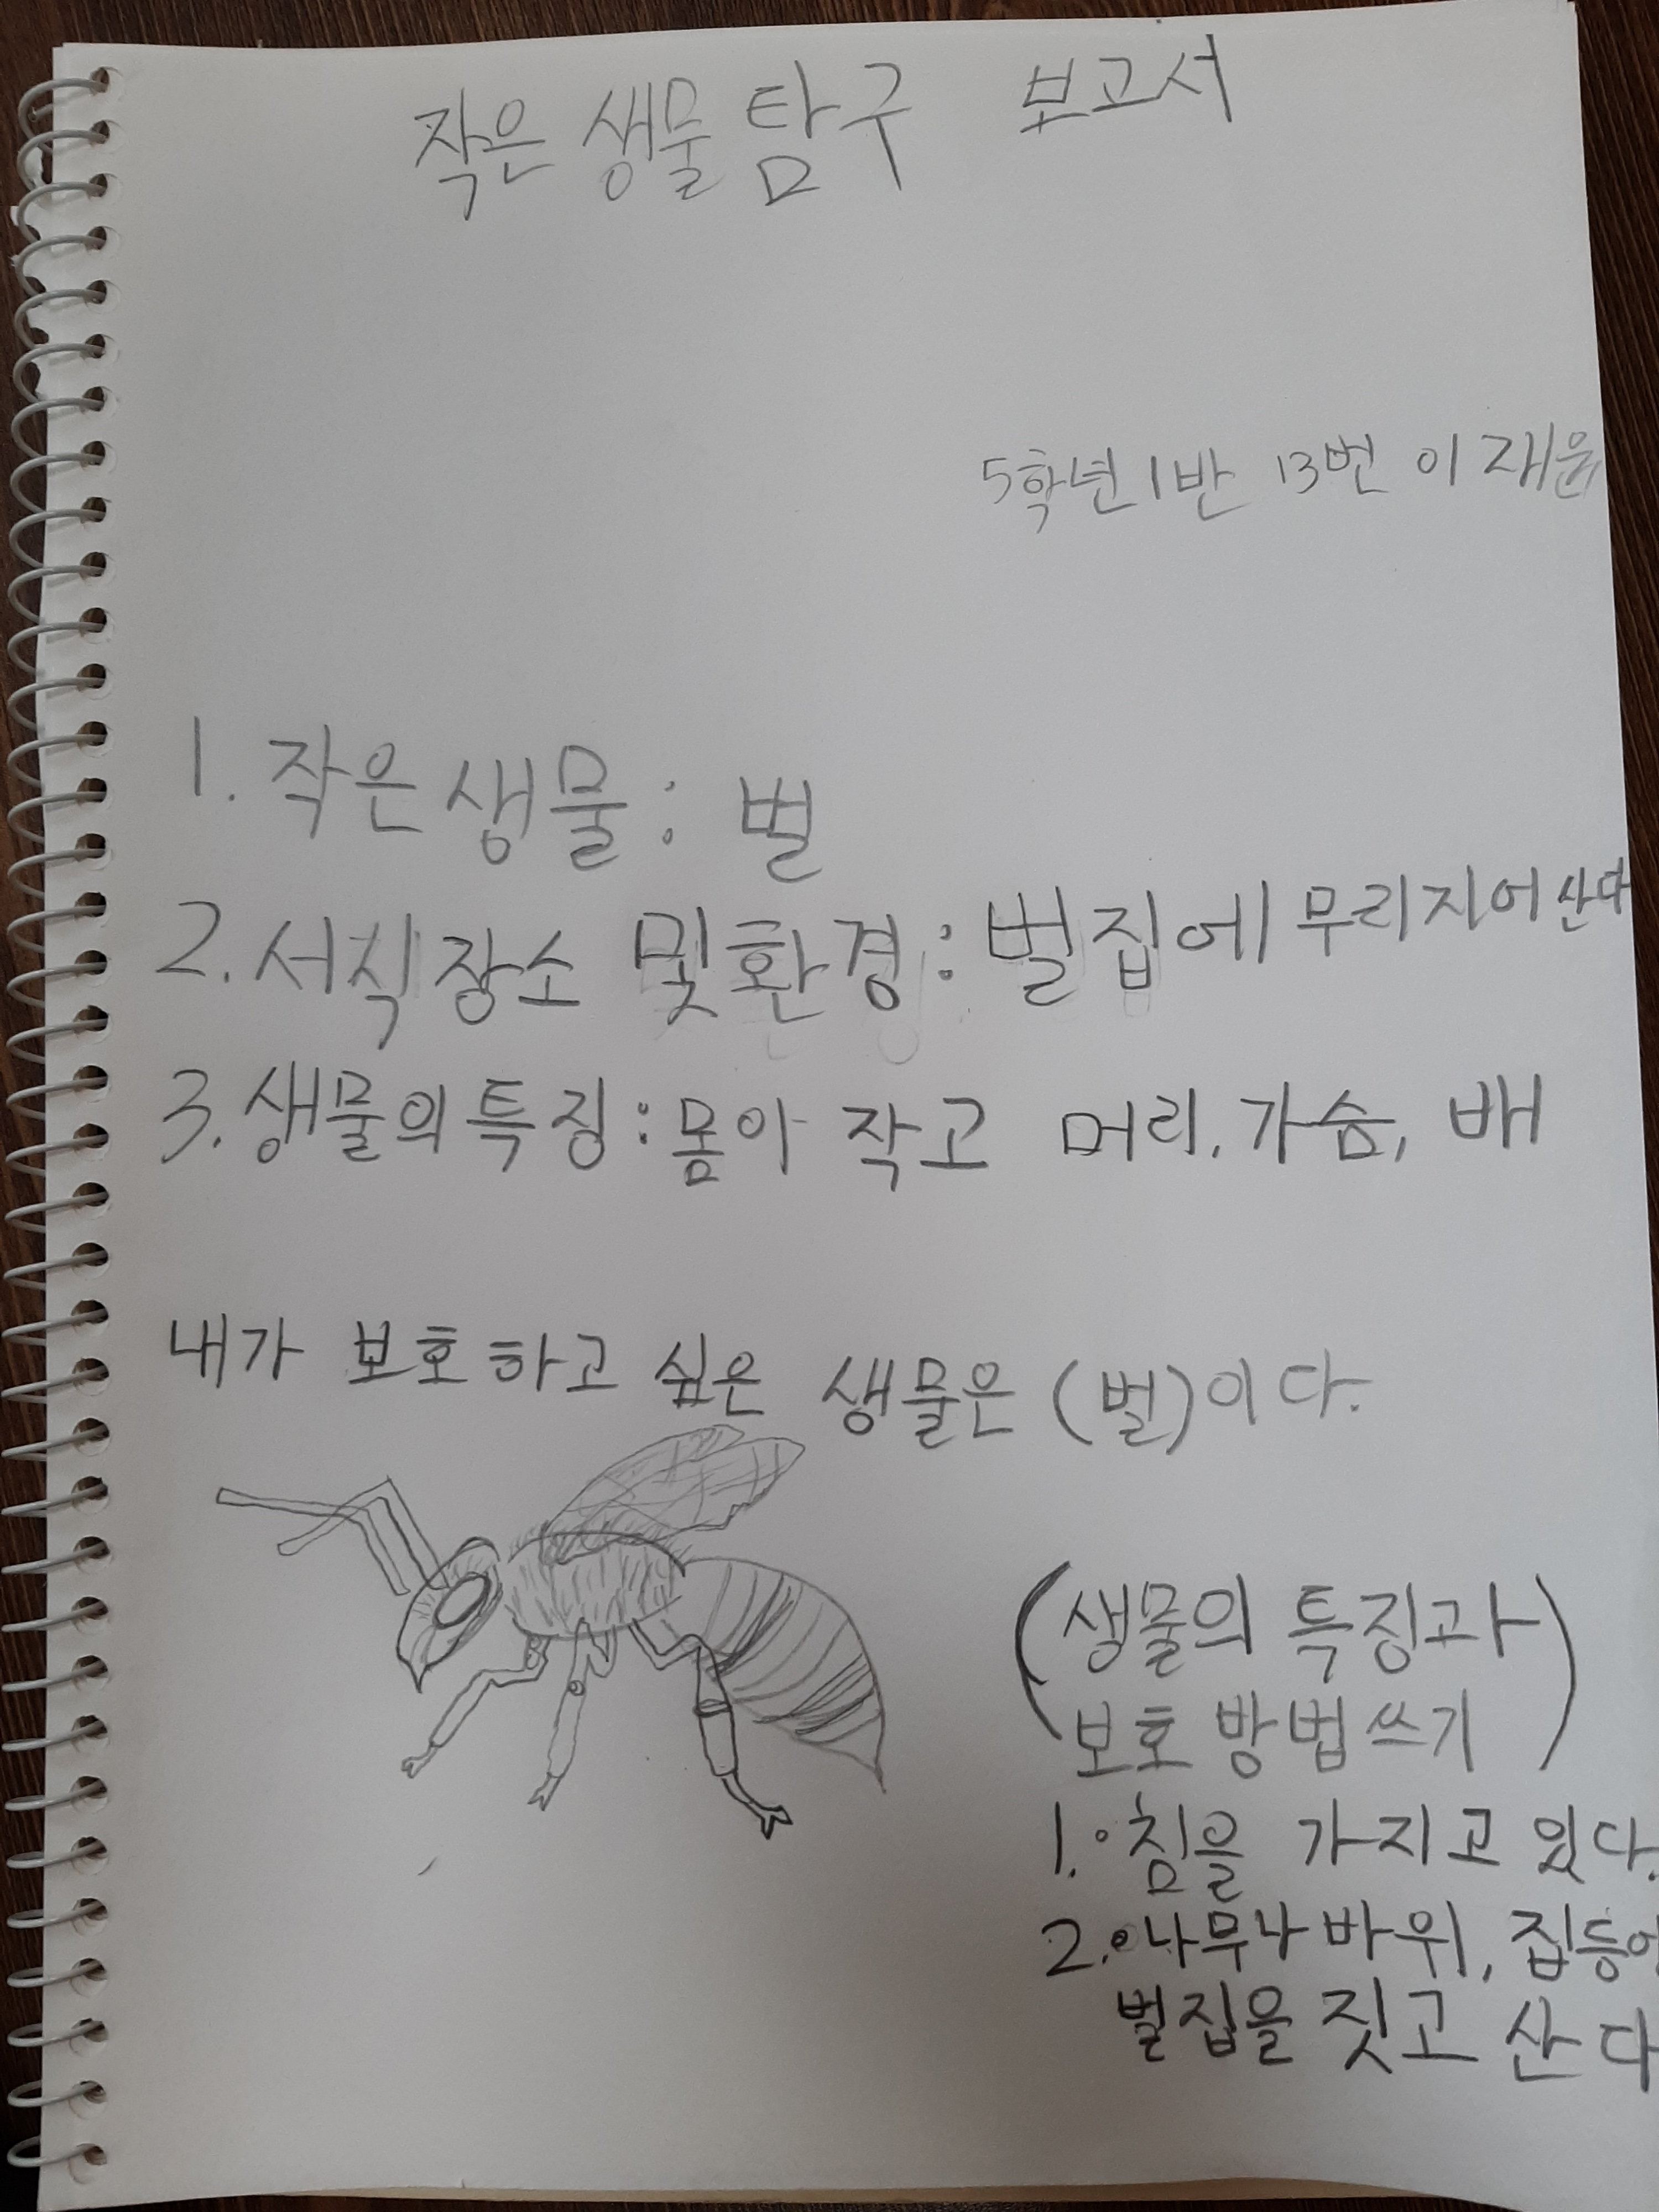 작은 생물 탐구 보고서
5학년 1반 13번 이재윤
1. 작은 생물 : 벌
2. 서식 장소 및 환경 : 벌집에 무리지어 산다
3. 생물의 특징 : 몸아 작고 머리, 가슴, 배
내가 보호하고 싶은 생물은 (벌)이다.
(생물의 특징과
보호 방법 쓰기)
1. 침을 가지고 있다.
2. 나무나 바위, 집등에
벌집을 짓고 산다